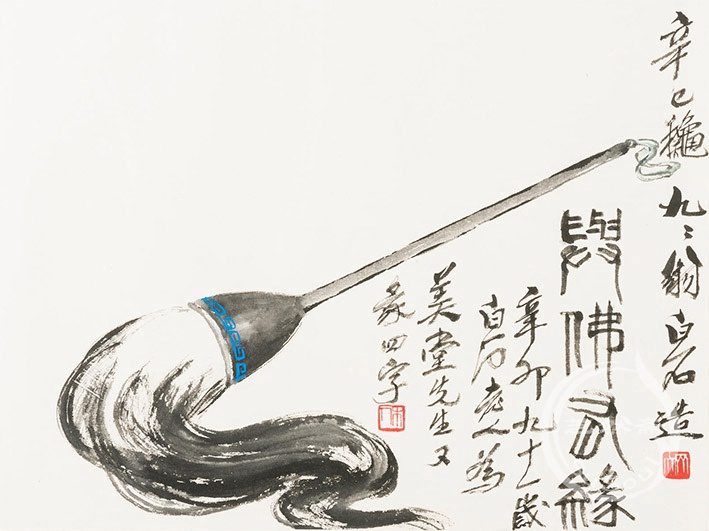 辛巳龝九〻翁白石造
與佛有緣
辛卯九十一歲
白石老人為
美堂先生又
篆四字